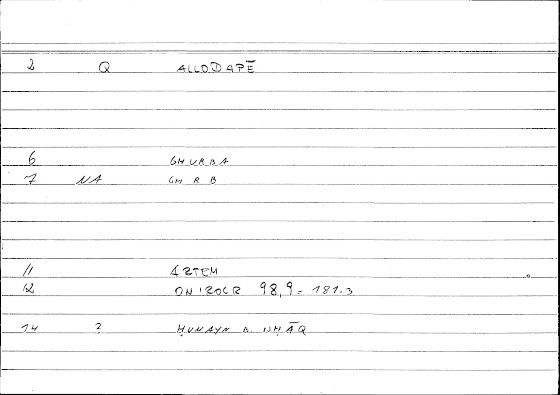 2 Q ALLODAPĒ
6 GHURBA
7 NA GH R B
11 ARTEM
12 ONIROCR 98,9 = 181.3
14 ? ḤUNAYN B. ISḤĀQ